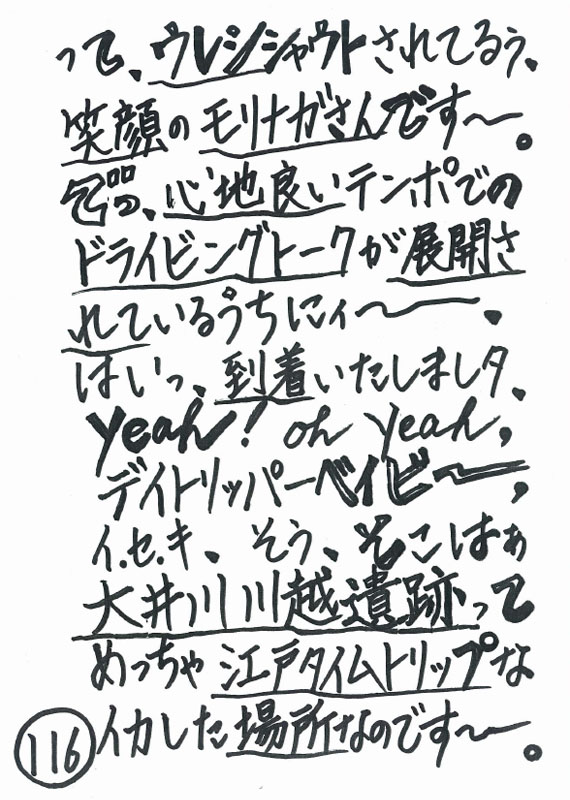 って、ウレシシャウトされてるぅ、
笑顔のモリナガさんです〜。
、心地良いテンポでの
ドライビングトークが展開さ
れているうちにィ〜、
はいっ、到着いたしましタ、
yeah! oh yeah,
デイトリッパーベイビ〜,
イ.セ.キ、そう、そこはぁ
大井川川越遺跡って
めっちゃ江戸タイムトリップな
イカした場所なのです〜。
116